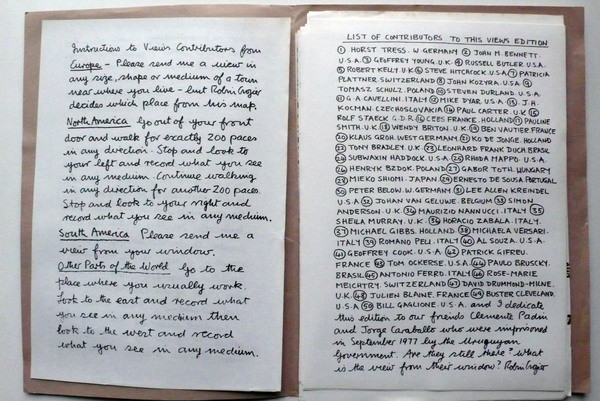 Instructions to Views Contributors from
Europe - Please send me a view in
any size, shape or medium of a town
near where you live - but Robin Crozier
decides which place from his map.
North America Go out of your front
door and walk for exactly 200 paces
in any direction. Stop and look to
your left and record what you see
in any medium. Continue walking
in any direction for another 200 paces.
Stop and look to your right and
record what you see in any medium.
South America Please send me a
view from your window.
Other Parts of the World Go to the
place where you usually work.
Look to the east and record what
you see in any medium then
look to the west and record
what you see in any medium.
LIST OF CONTRIBUTORS TO THIS VIEWS EDITION
① HORST TRESS. W. GERMANY ② JOHN M. BENNETT.
U.S.A. ③ GEOFFREY YOUNG. U.K. ④ RUSSELL BUTLER. U.S.A.
⑤ ROBERT KELLY. U.K. ⑥ STEVE HITCHCOCK. U.S.A ⑦ PATRICIA
PLATTNER. SWITZERLAND ⑧ JOHN KOZYRA. U.S.A. ⑨
TOMASZ SCHULZ. POLAND ⑩ STEVEN DURLAND. U.S.A.
⑪ G.A. CAVELLINI. ITALY ⑫ MIKE DYAR. U.S.A ⑬ J.H.
KOCMAN. CZECHOSLOVAKIA ⑭ PAUL CARTER. U.K. ⑮
ROLF STAECK. G.D.R. ⑯ CEES FRANKE. HOLLAND ⑰ PAULINE
SMITH. U.K. ⑱ WENDY BRITON. U.K. ⑲ BEN VAUTIER. FRANCE
⑳ KLAUS GROH. WEST GERMANY ㉑ KO DE JONGE. HOLLAND
㉒ TONY BRADLEY. U.K. ㉓ LEONHARD FRANK DUCH. BRASIL
㉔ SUBWAXIN HADDOCK. U.S.A. ㉕ RHODA MAPPO. U.S.A.
㉖ HENRYK BZDOK. POLAND ㉗ GABOR TOTH. HUNGARY
㉘ MIEKO SHIOMI. JAPAN ㉙ ERNESTO DE SOUSA. PORTUGAL
㉚ PETER BELOW. W. GERMANY ㉛ LEE ALLEN KREINDEL
U.S.A. ㉜ JOHAN VAN GELUWE. BELGIUM ㉝ SIMON
ANDERSON. U.K. ㉞ MAURIZIO NANNUCCI. ITALY ㉟
SHEILA MURRAY. U.K. ㊱ HORACIO ZABALA. ITALY.
㊲ MICHAEL GIBBS. HOLLAND ㊳ MICHAELA VERSARI.
ITALY ㊴ ROMANO PELI. ITALY ㊵ AL SOUZA. U.S.A.
㊶ GEOFFREY COOK. U.S.A ㊷ PATRICK GIFREU.
FRANCE ㊸ TOM OCKERSE. U.S.A ㊹ PAULO BRUSCKY.
BRASIL ㊺ ANTONIO FERRO. ITALY ㊻ ROSE-MARIE
MEICHTRY. SWITZERLAND ㊼ DAVID DRUMMOND-MILNE.
U.K. ㊽ JULIEN BLAINE. FRANCE ㊾ BUSTER CLEVELAND.
U.S.A ㊿ BILL GAGLIONE. U.S.A. and I dedicate
this edition to our friends Clemente Padin
and Jorge Caraballo who were imprisoned
in September 1977 by the Uruguayan
Government. Are they still there? What
is the view from their window? Robin Crozier